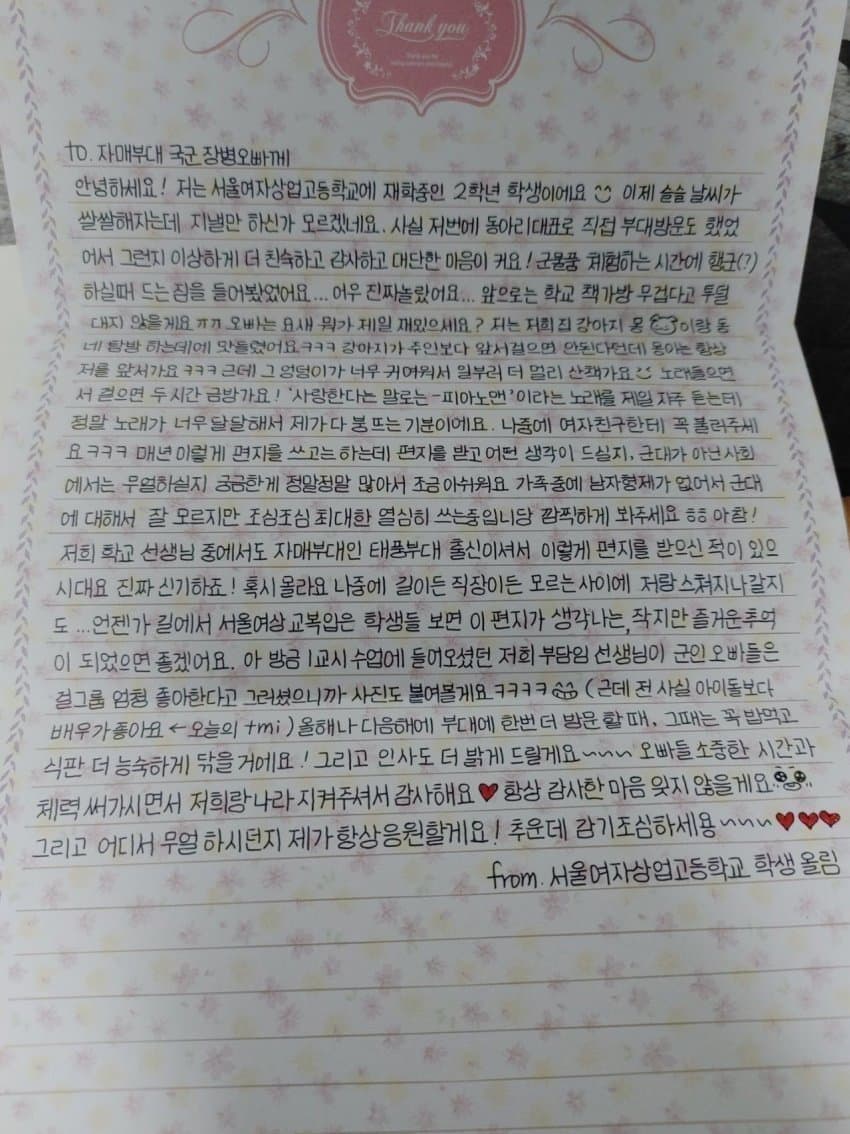 Thank you
to. 자매부대 국군 장병오빠께
안녕하세요! 저는 서울여자상업고등학교에 재학중인 2학년 학생이에요 이제 슬슬 날씨가
쌀쌀해지는데 지낼만 하신가 모르겠네요. 사실 저번에 동아리대표로 직접 부대방문도 했었
어서 그런지 이상하게 더 친숙하고 감사하고 대단한 마음이 커요! 군물품 체험하는 시간에 행군(?)
하실때 드는 짐을 들어봤었어요... 어우 진짜놀랐어요... 앞으로는 학교 책가방 무겁다고 투덜
대지 않을게요ㅠㅠ 오빠는 요새 뭐가 제일 재밌으세요? 저는 저희집 강아지 몽이랑 동
네 탐방 하는데에 맛들렸어요ㅋㅋㅋ 강아지가 주인보다 앞서걸으면 안된다던데 몽이는 항상
저를 앞서가요ㅋㅋㅋ 근데 그 엉덩이가 너무 귀여워서 일부러 더 멀리 산책가요 노래들으면
서 걸으면 두시간 금방가요! '사랑한다는 말로는-피아노맨'이라는 노래를 제일 자주 듣는데
정말 노래가 너무 달달해서 제가 다 붕 뜨는 기분이에요. 나중에 여자친구한테 꼭 불러주세
요ㅋㅋㅋ 매년 이렇게 편지를 쓰고는 하는데 편지를 받고 어떤 생각이 드실지, 군대가 아닌 사회
에서는 무얼하실지 궁금한게 정말정말 많아서 조금 아쉬워요 가족중에 남자형제가 없어서 군대
에 대해서 잘 모르지만 조심조심 최대한 열심히 쓰는중입니당 깜찍하게 봐주세요ㅎㅎ 아참!
저희 학교 선생님 중에서도 자매부대인 태풍부대 출신이셔서 이렇게 편지를 받으신 적이 있으
시대요 진짜 신기하죠! 혹시 몰라요 나중에 길이든 직장이든 모르는 사이에 저랑 스쳐지나갈지
도...언젠가 길에서 서울여상 교복입은 학생들 보면 이 편지가 생각나는, 작지만 즐거운추억
이 되었으면 좋겠어요. 아 방금 1교시 수업에 들어오셨던 저희 부담임 선생님이 군인 오빠들은
걸그룹 엄청 좋아한다고 그러셨으니까 사진도 붙여볼게요ㅋㅋㅋㅋ (근데 전 사실 아이돌보다
배우가 좋아요 ← 오늘의 tmi) 올해나 다음해에 부대에 한번 더 방문 할 때, 그때는 꼭 밥먹고
식판 더 능숙하게 닦을 거에요! 그리고 인사도 더 밝게 드릴게요~~~ 오빠들 소중한 시간과
체력 써가시면서 저희랑 나라 지켜주셔서 감사해요♥ 항상 감사한 마음 잊지 않을게요
그리고 어디서 무얼 하시던지 제가 항상 응원할게요! 추운데 감기조심하세용~~~♥♥♥
from. 서울여자상업고등학교 학생 올림